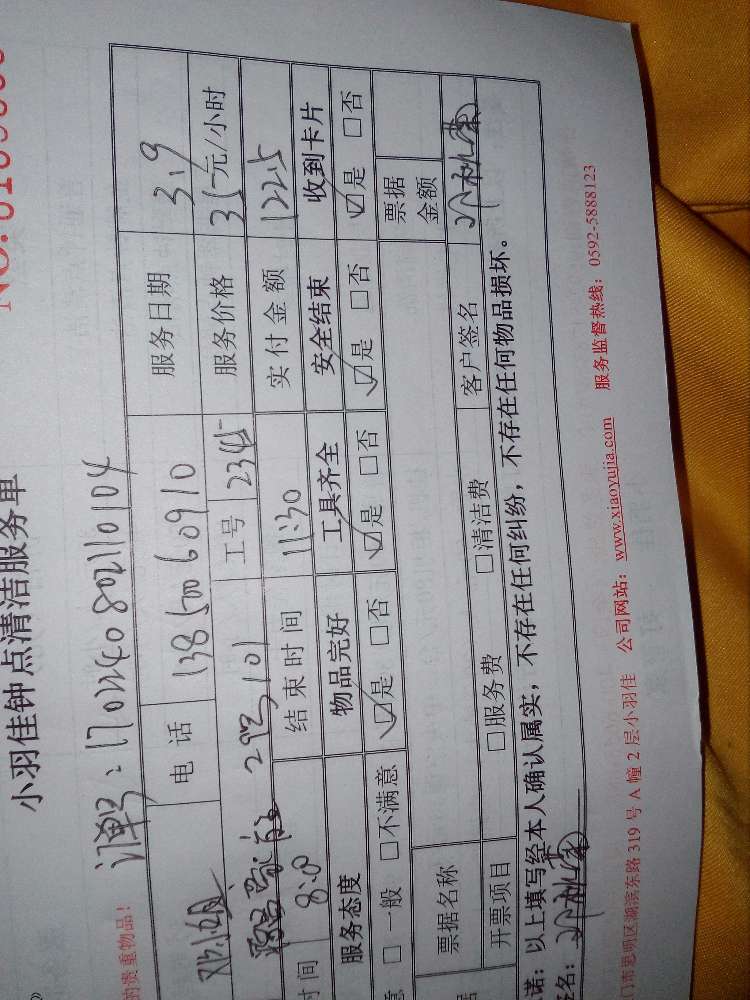 小羽佳钟点清洁服务单
的贵重物品!
订单号:1702240802110104
电话 13850060910 服务日期 3.9
29号101 工号 2345 服务价格 35元/小时
时间 8:0 结束时间 11:30 实付金额 122.5
服务态度 物品完好 工具齐全 安全结束 收到卡片
意 □一般 □不满意 ☑是 □否 ☑是 □否 ☑是 □否 ☑是 □否
票据名称 票据金额
据 开票项目 □服务费 □清洁费 客户签名
诺:以上填写经本人确认属实,不存在任何纠纷,不存在任何物品损坏。
名:
门市思明区湖滨东路 319 号 A 幢 2 层小羽佳 公司网站:www.xiaoyujia.com 服务监督热线:0592-5888123